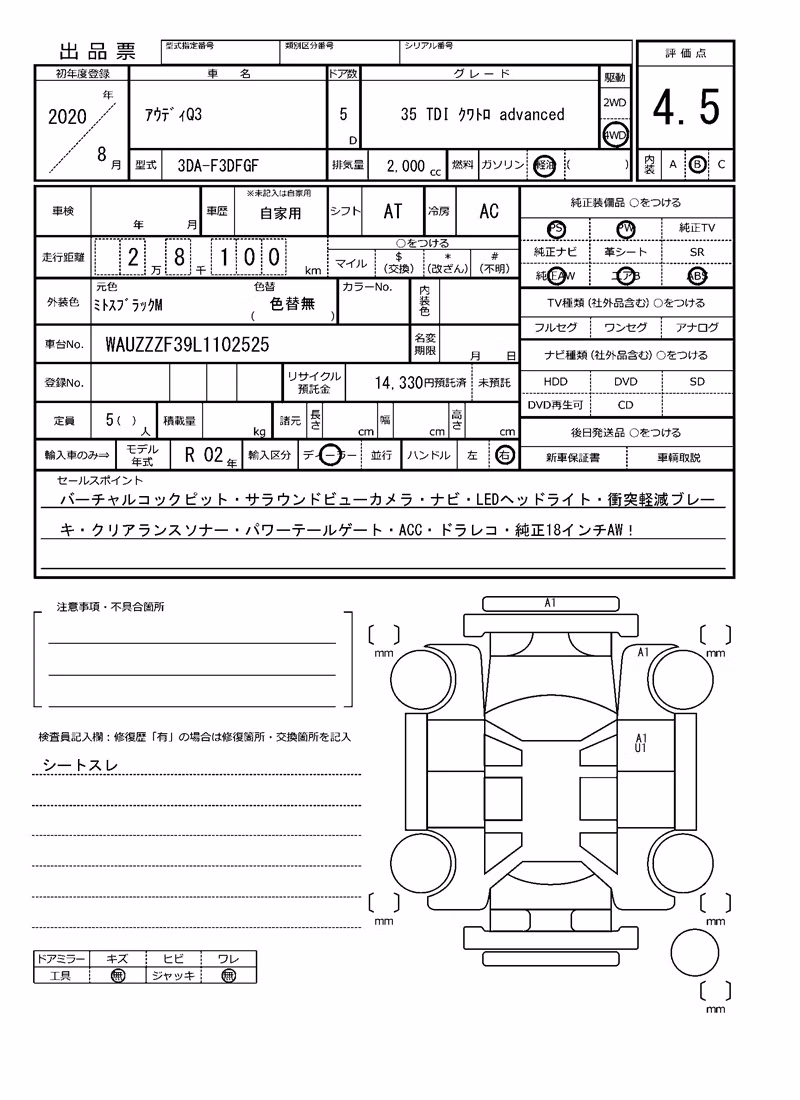 出品票 型式指定番号 類別区分番号 シリアル番号
評価点
初年度登録 車名 ドア数 グレード 駆動
2020 年 8 月 アウディQ3 5 D 35 TDI クワトロ advanced 2WD 4WD
4.5
型式 3DA-F3DFGF 排気量 2,000 cc 燃料 ガソリン 軽油 ( )
内装 A B C
車検 年 月 車歴 ※未記入は自家用 自家用 シフト AT 冷房 AC
走行距離 2 万 8 千 1 0 0 km ○をつける
マイル $(交換) *(改ざん) #(不明)
外装色 元色 ミトスブラックM 色替 ( 色替無 ) カラーNo. 内装色
車台No. WAUZZZF39L1102525 名変期限 月 日
登録No. リサイクル預託金 14,330円預託済 未預託
定員 5( ) 人 積載量 kg 諸元 長さ cm 幅 cm 高さ cm
輸入車のみ⇒ モデル年式 R 02 年 輸入区分 ディーラー 並行 ハンドル 左 右
純正装備品 ○をつける
PS PW 純正TV
純正ナビ 革シート SR
純正AW エアB ABS
TV種類(社外品含む)○をつける
フルセグ ワンセグ アナログ
ナビ種類(社外品含む)○をつける
HDD DVD SD
DVD再生可 CD
後日発送品 ○をつける
新車保証書 車輌取説
セールスポイント
バーチャルコックピット・サラウンドビューカメラ・ナビ・LEDヘッドライト・衝突軽減ブレー
キ・クリアランスソナー・パワーテールゲート・ACC・ドラレコ・純正18インチAW!
注意事項・不具合箇所
検査員記入欄:修復歴「有」の場合は修復箇所・交換箇所を記入
シートスレ
ドアミラー キズ ヒビ ワレ
工具 無 ジャッキ 無
A1
mm
mm
A1
A1
U1
mm
mm
mm